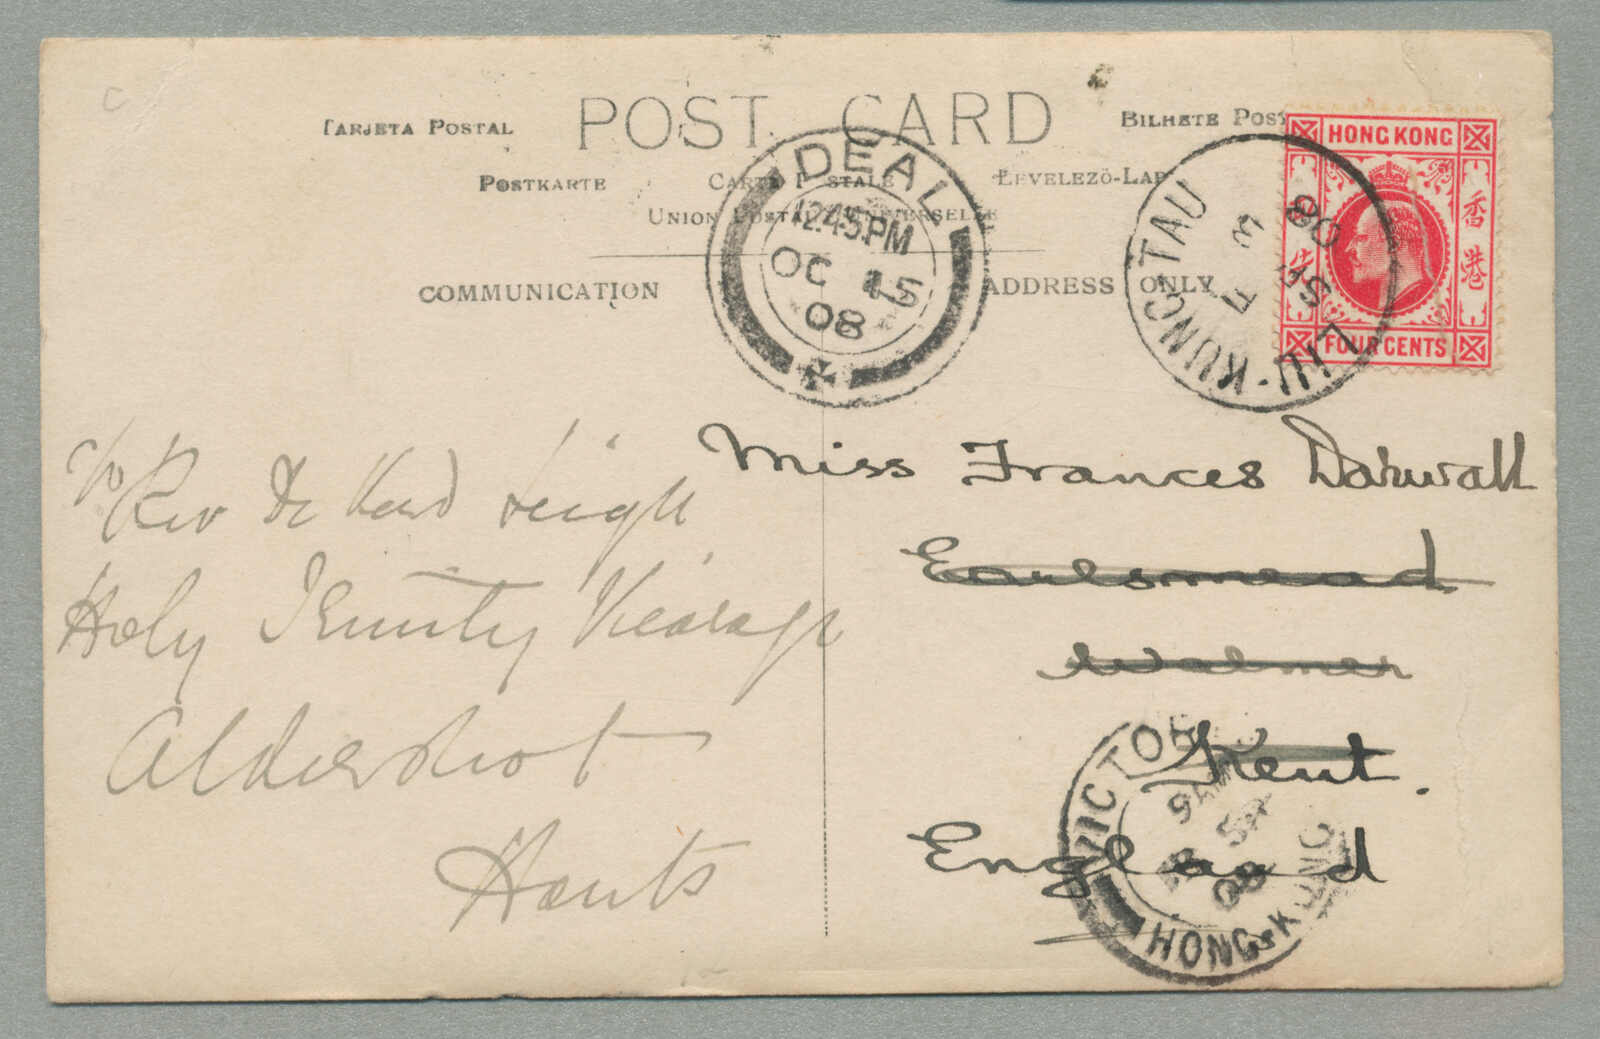 TARJETA POSTAL
POST CARD
BILHETE POST
POSTKARTE
CARTE POSTALE
LEVELEZÖ-LAP
UNION POSTALE UNIVERSELLE
COMMUNICATION
ADDRESS ONLY
DEAL
12.45.PM
OC 15
08
HONG KONG
香港
FOUR CENTS
LIU·KUNG TAU
7 SP
08
Miss Frances Darwall
Earlsmead
Walmer
Kent.
England
c/o
Rev De Leigh
Holy Trinity Vicarage
Aldershot
Hants
VICTORIA
HONG-KONG
SP
08